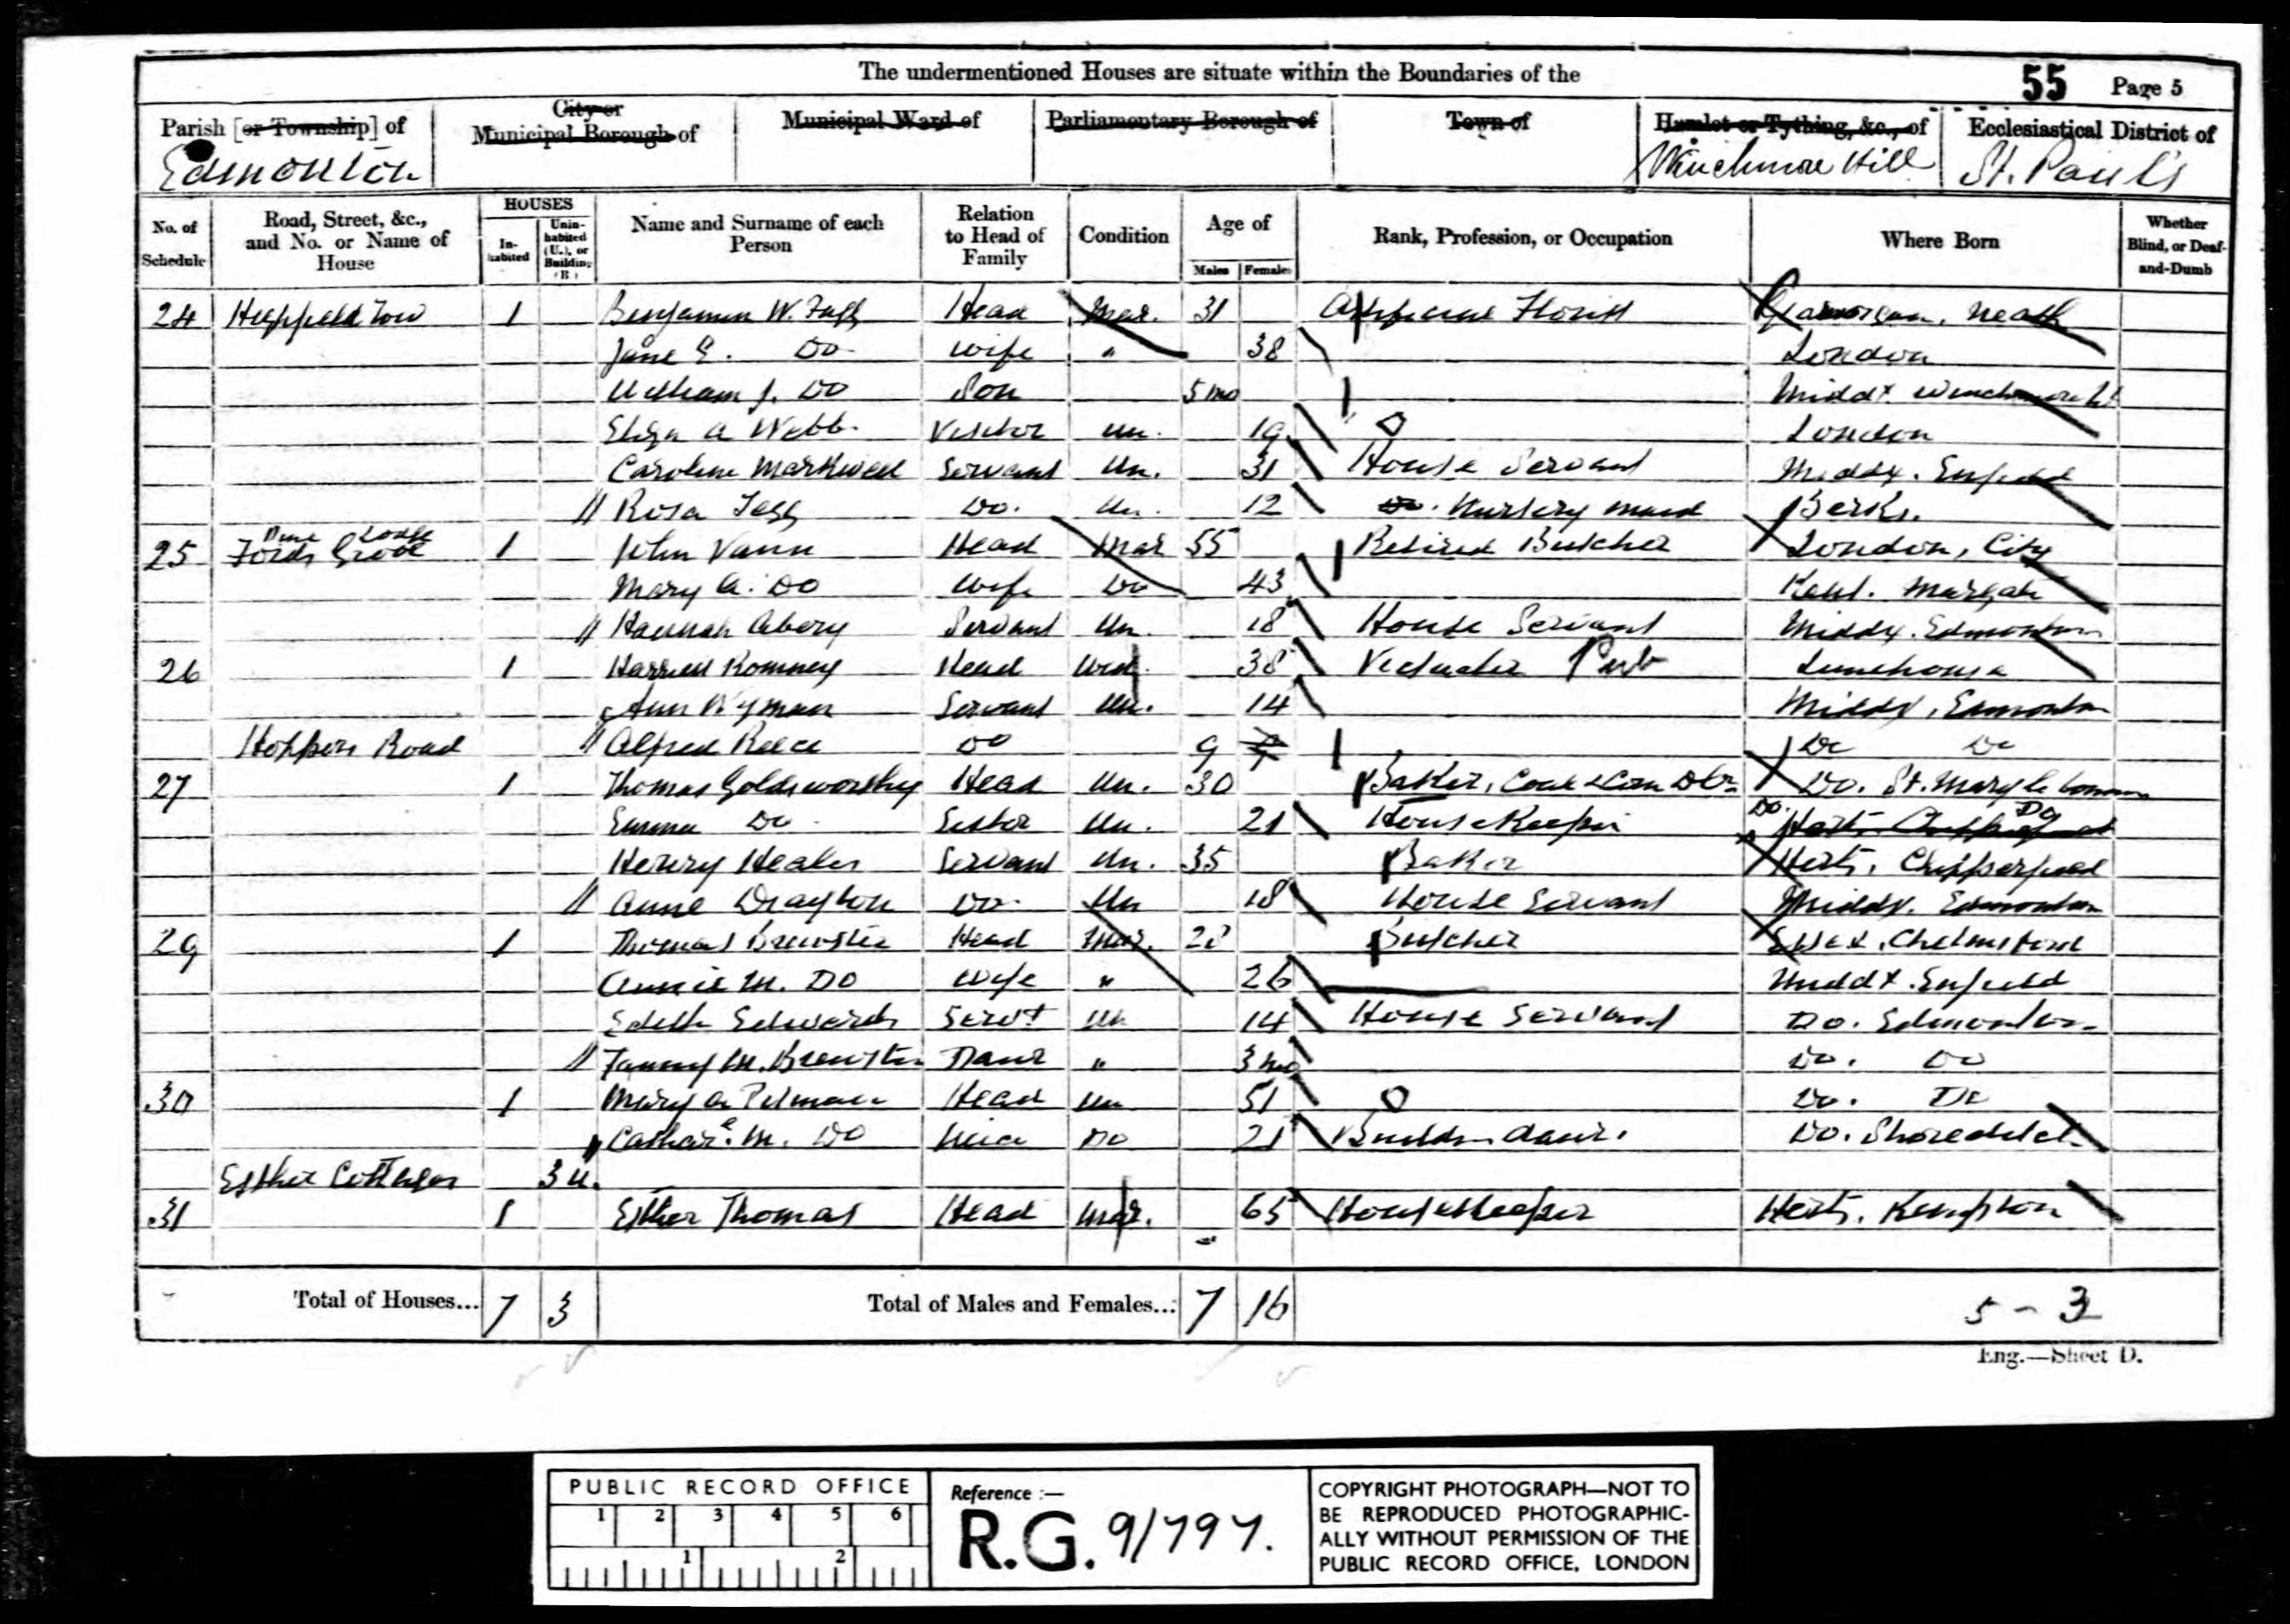 The undermentioned Houses are situate within the Boundaries of the
55 Page 5
Parish [or Township] of Edmonton
City or Municipal Borough of
Municipal Ward of
Parliamentary Borough of
Town of
Hamlet or Tything, &c., of Winchmore Hill
Ecclesiastical District of St. Paul's
No. of Schedule
Road, Street, &c., and No. or Name of House
HOUSES
In-habited
Unin-habited (U.), or Building (B)
Name and Surname of each Person
Relation to Head of Family
Condition
Age of
Males
Females
Rank, Profession, or Occupation
Where Born
Whether Blind, or Deaf-and-Dumb
24 1 Benjamin W. Head Mar. 31 Artificial Florist Glamorgan, Neath
Jane E. Do Wife " 38 London
William J. Do Son 5 mo Middx Winchmore Hl
Eliza A Webb Visitor Un. 19 London
Caroline Markwell Servant Un. 31 House Servant Middx. Enfield
Rosa Do. Un. 12 Do. Nursery Maid Berks.
25 Lodge Fords Grove 1 John Vann Head Mar 55 Retired Butcher London, City
Mary A. Do Wife Do 43 Kent. Margate
Hannah Abery Servant Un. 18 House Servant Middx. Edmonton
26 1 Harriett Romney Head Wid. 38 Victualler Pub Limehouse
Ann Wyman Servant Un. 14 Middx, Edmonton
Hoppers Road Alfred Reece Do 9 Do Do
27 1 Thomas Goldsworthy Head Un. 30 Baker, Coal & Corn Dlr Do. St. Marylebone
Emma Do Sister Un. 21 House Keeper Do. Do Herts
Henry Servant Un. 35 Baker Herts, Chipperfield
Anne Drayton Do. Un 18 House Servant Middx. Edmonton
29 1 Thomas Brewster Head Mar. 28 Butcher Essex, Chelmsford
Annie M. Do Wife " 26 Middx. Enfield
Edith Edwards Servt Un 14 House Servant Do. Edmonton
Fanny M. Brewster Daur " 3 mo Do. Do
30 1 Mary A Head Un 51 Do. Do
Cathare. M. Do Niece Do 21 Builders daur. Do. Shoreditch
Esther Cottages 3 U.
31 1 Esther Thomas Head Mar. 65 Housekeeper Herts. Kimpton
Total of Houses... 7 3
Total of Males and Females... 7 16
5 - 3
Eng.—Sheet D.
PUBLIC RECORD OFFICE
1 2 3 4 5 6
1 2
Reference :—
R.G. 9/797.
COPYRIGHT PHOTOGRAPH—NOT TO
BE REPRODUCED PHOTOGRAPHIC-
ALLY WITHOUT PERMISSION OF THE
PUBLIC RECORD OFFICE, LONDON